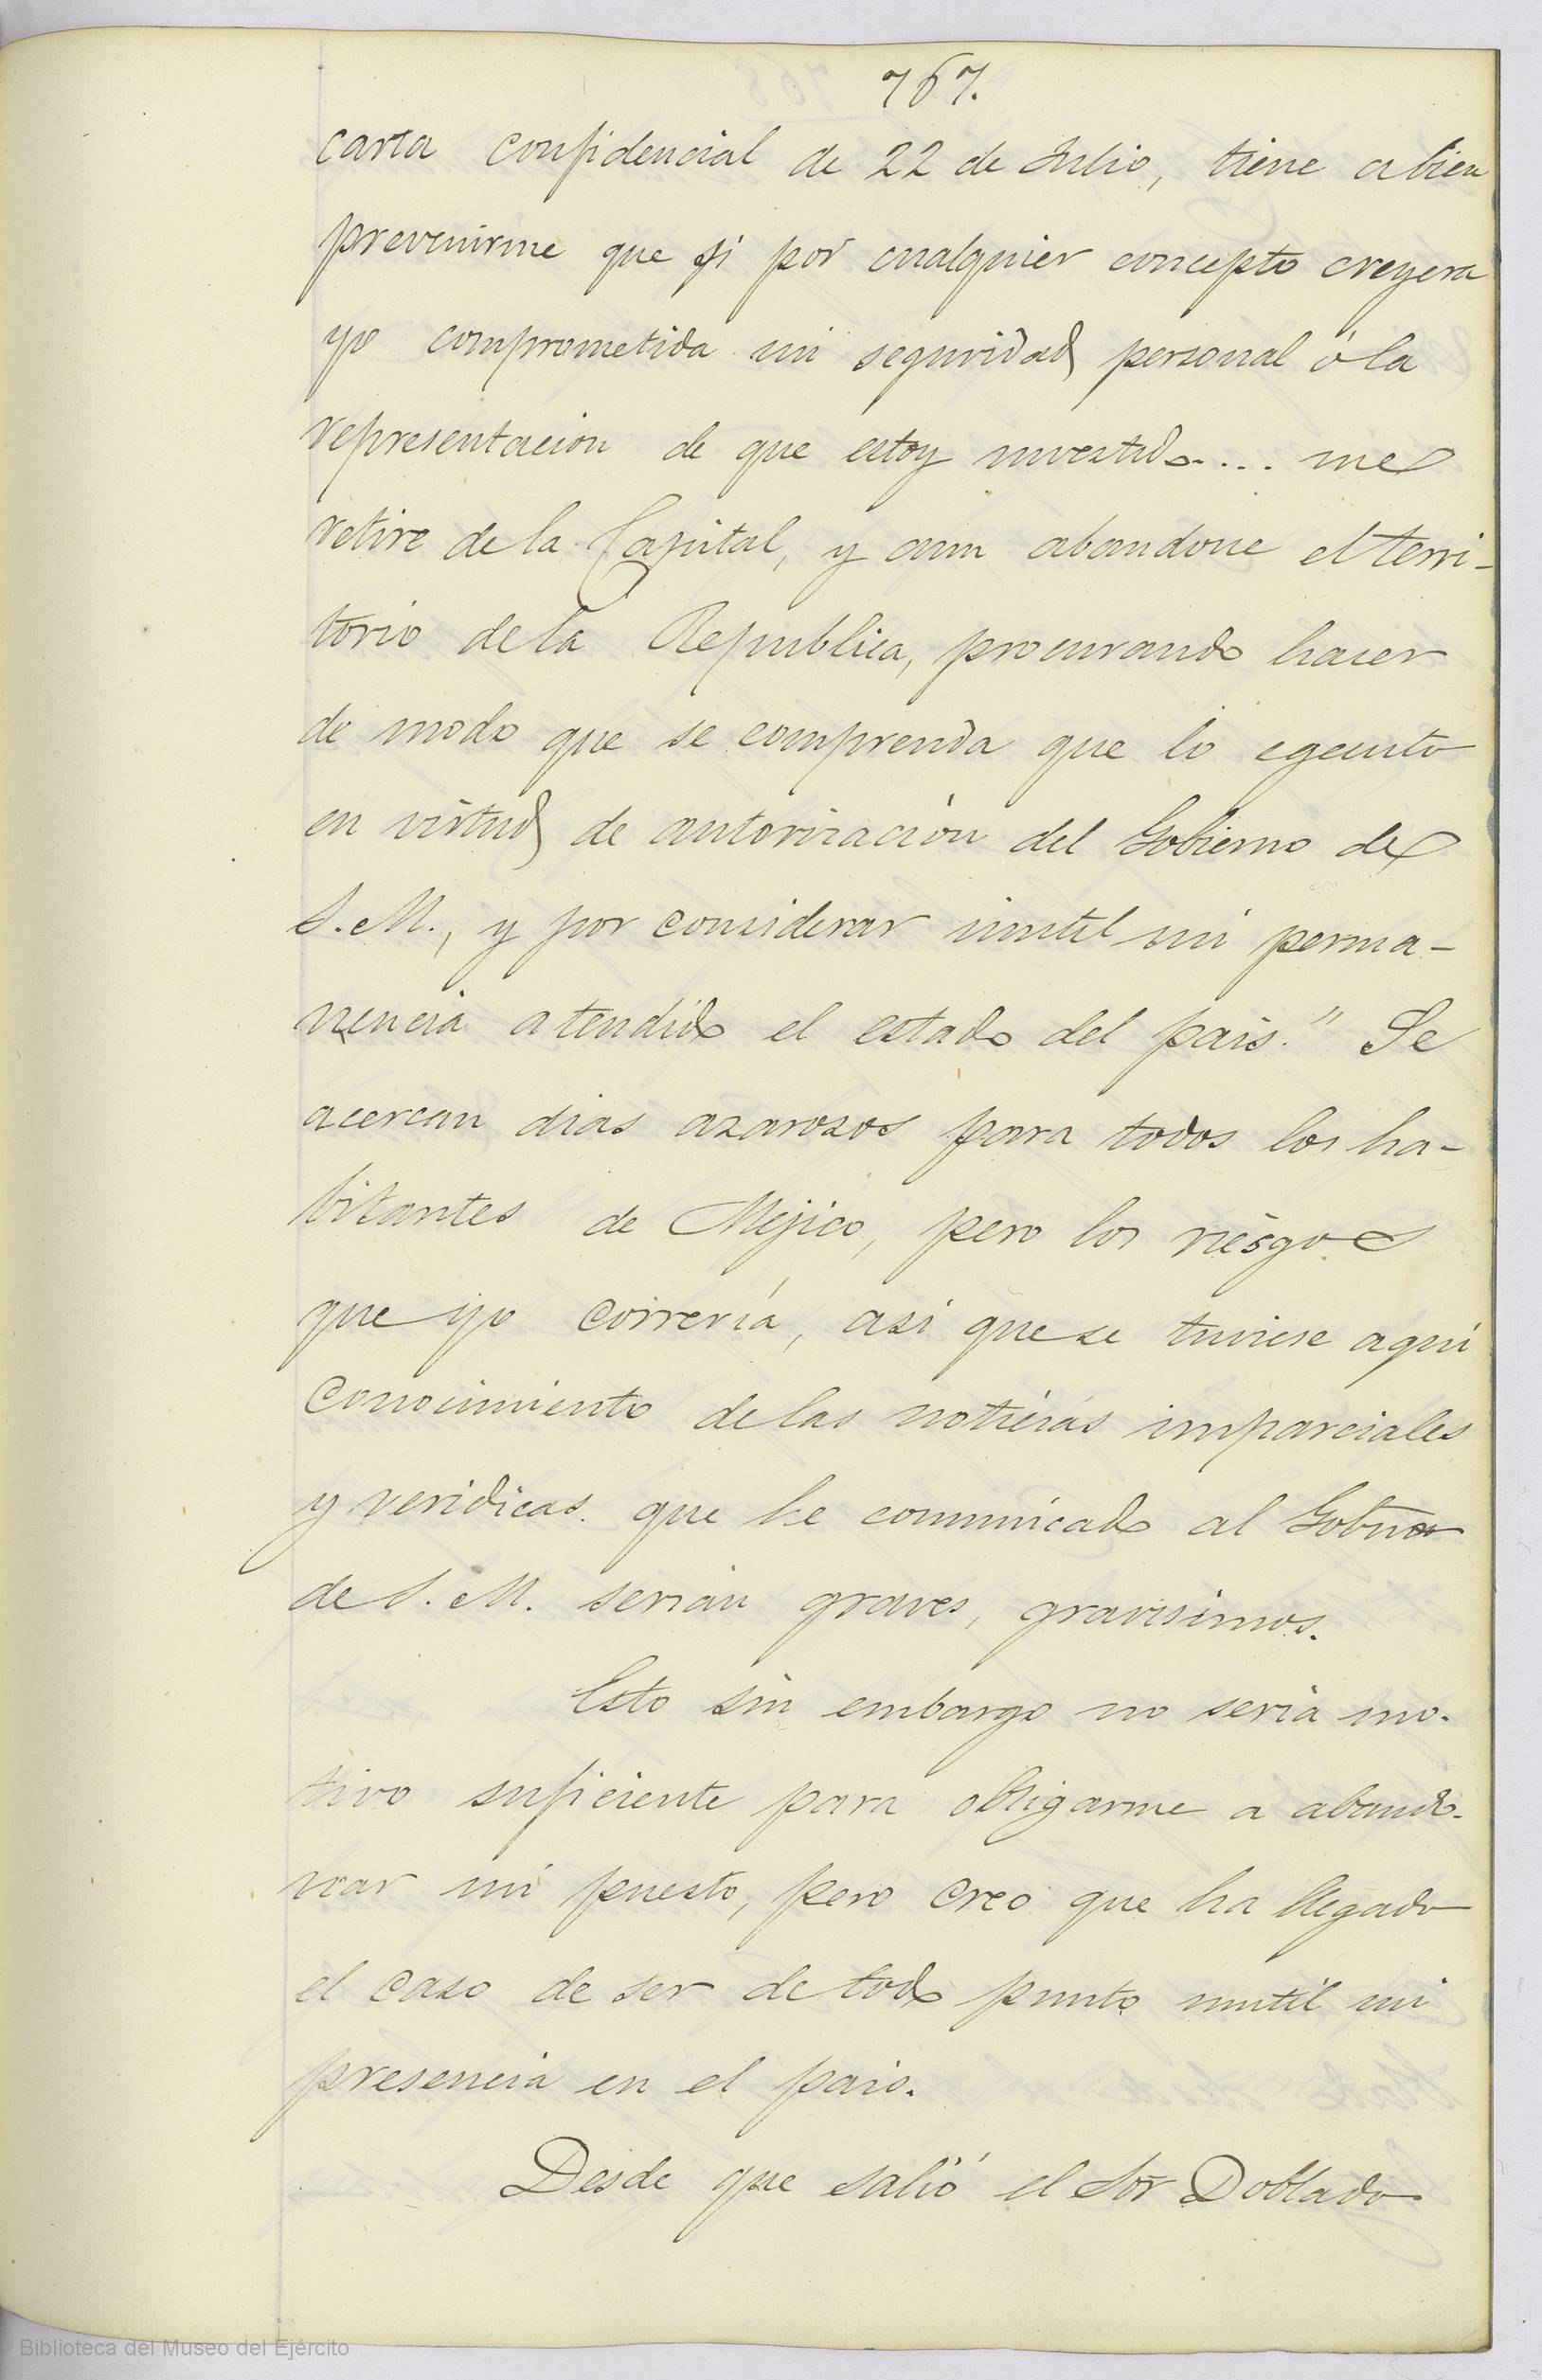 767.
carta confidencial de 22 de Julio, tiene a bien
prevenirme que si por cualquier concepto creyera
yo comprometida mi seguridad personal ó la
representacion de que estoy investido.... me
retire de la Capital, y aun abandone el terri-
torio de la Republica, procurando hacer
de modo que se comprenda que lo egecuto
en virtud de autorizacion del Gobierno de
S. M., y por considerar inutil mi perma-
nencia atendido el estado del pais." Se
acercan dias azarosos para todos los ha-
bitantes de Mejico, pero los riesgos
que yo correría, asi que se tuviese aqui
conocimiento de las noticias imparciales
y veridicas que he comunicado al Gobno
de S. M. serian graves, gravisimos.
Esto sin embargo no seria mo-
tivo suficiente para obligarme a abando-
nar mi puesto, pero creo que ha llegado
el caso de ser de todo punto inutil mi
presencia en el pais.
Desde que salió el Sor Doblado
Biblioteca del Museo del Ejército